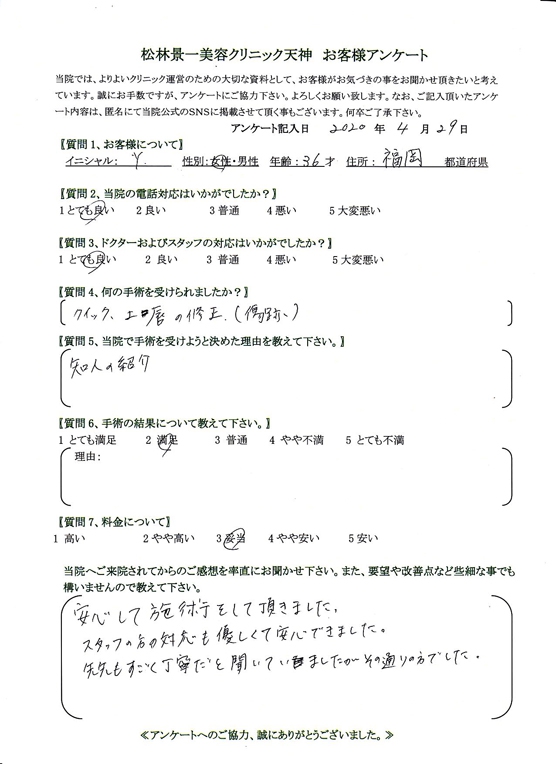 松林景一美容クリニック天神　お客様アンケート
当院では、よりよいクリニック運営のための大切な資料として、お客様がお気づきの事をお聞かせ頂きたいと考え
ています。誠にお手数ですが、アンケートにご協力下さい。よろしくお願い致します。なお、ご記入頂いたアンケ
ート内容は、匿名にて当院公式のSNSに掲載させて頂く事もございます。何卒ご了承下さい。
アンケート記入日　2020 年 4 月 29 日
【質問1、お客様について】
イニシャル： Y.　性別：女性・男性　年齢：36才　住所：福岡　都道府県
【質問2、当院の電話対応はいかがでしたか？】
1とても良い　2良い　3普通　4悪い　5大変悪い
【質問3、ドクターおよびスタッフの対応はいかがでしたか？】
1とても良い　2 良い　3 普通　4悪い　5大変悪い
【質問4、何の手術を受けられましたか？】
クイック、上口唇の修正.(傷跡)
【質問5、当院で手術を受けようと決めた理由を教えて下さい。】
知人の紹介
【質問6、手術の結果について教えて下さい。】
1 とても満足　2 満足　3 普通　4 やや不満　5 とても不満
理由：
【質問7、料金について】
1 高い　2やや高い　3 妥当　4やや安い　5安い
当院へご来院されてからのご感想を率直にお聞かせ下さい。また、要望や改善点など些細な事でも
構いませんので教えて下さい。
安心して施術をして頂きました。
スタッフの方の対応も優しくて安心できました。
先生もすごく丁寧だと聞いていましたがその通りの方でした。
≪アンケートへのご協力、誠にありがとうございました。≫